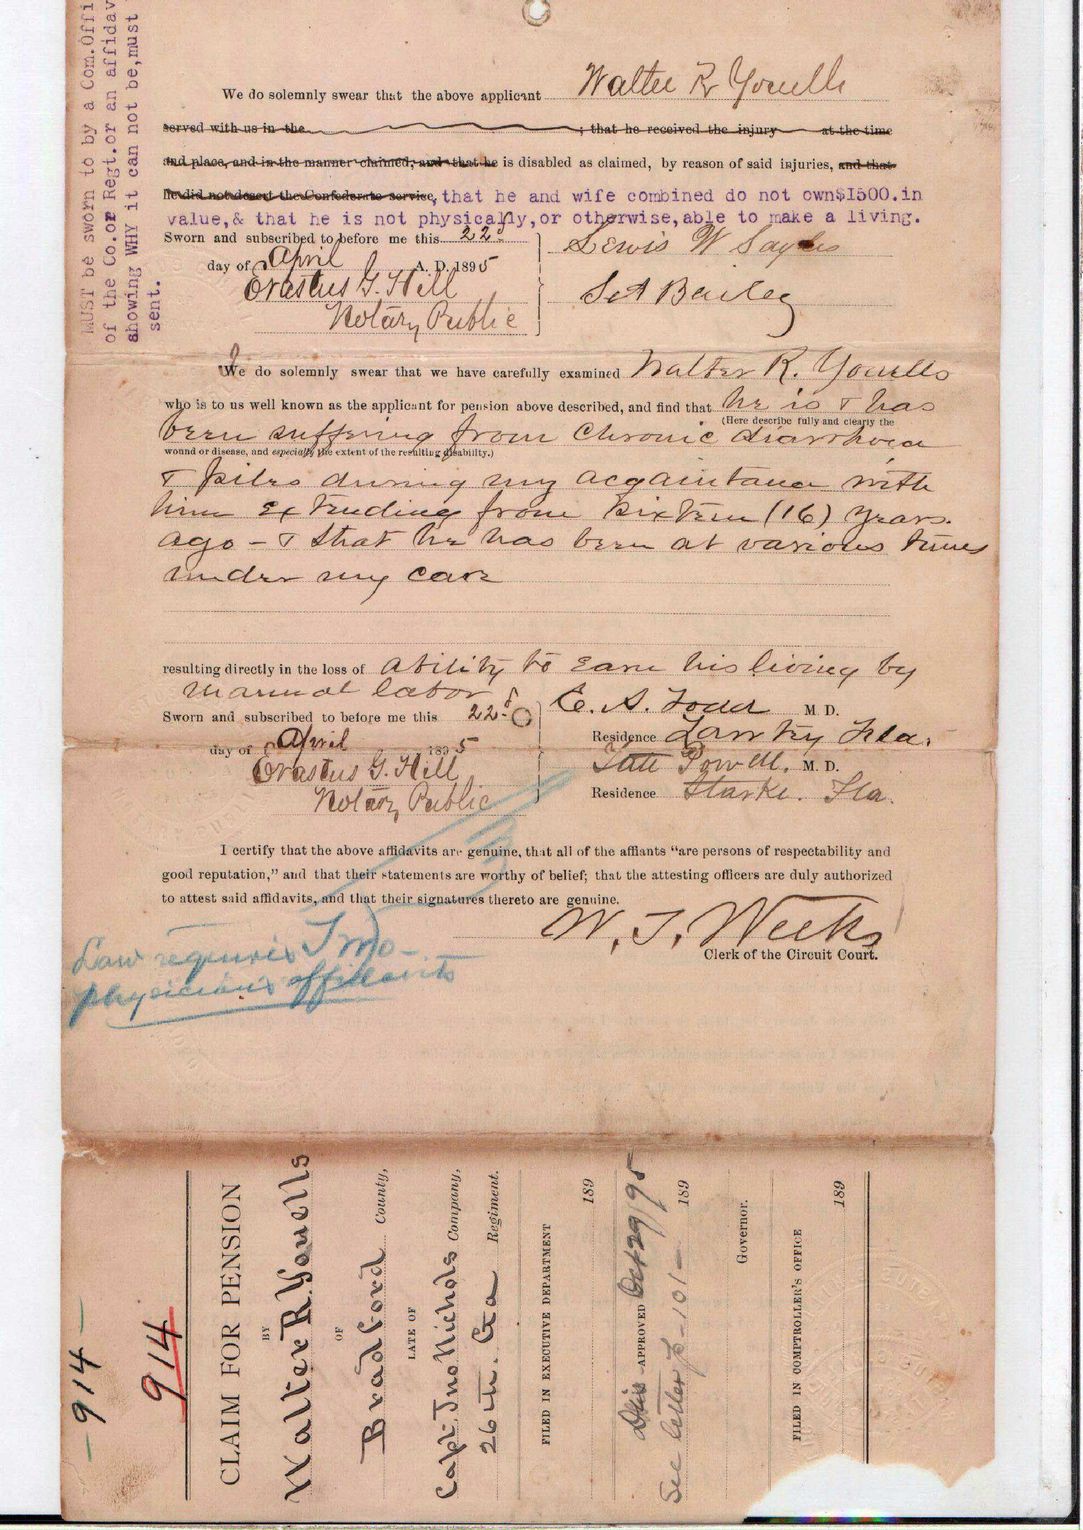 MUST be sworn to by a Com.Offi
of the Co.or Regt.or an affidav
showing WHY it can not be,must
sent.
We do solemnly swear that the above applicant Walter R Youells
served with us in the ; that he received the injury at the time
and place, and in the manner claimed; and that he is disabled as claimed, by reason of said injuries, and that
he did not desert the Confederate service, that he and wife combined do not own$1500.in
value,& that he is not physically,or otherwise,able to make a living.
Sworn and subscribed to before me this 22d
day of April A. D. 1895
Erastus G. Hill
Notary Public
Lewis W Sayles
Bailey
We do solemnly swear that we have carefully examined Walter R. Youells
who is to us well known as the applicant for pension above described, and find that he is & has
(Here describe fully and clearly the
been suffering from Chronic diarrhoea
wound or disease, and especially the extent of the resulting disability.)
& piles during my acquaintance with
him extending from sixteen (16) years
ago - & that he has been at various times
under my care
resulting directly in the loss of ability to earn his living by
manual labor
Sworn and subscribed to before me this 22d
day of April 1895
Erastus G. Hill
Notary Public
E. A. M. D.
Residence Lawtey Fla.
Tate Powell. M. D.
Residence Starke. Fla.
I certify that the above affidavits are genuine, that all of the affiants “are persons of respectability and
good reputation,” and that their statements are worthy of belief; that the attesting officers are duly authorized
to attest said affidavits, and that their signatures thereto are genuine.
W. T. Weeks
Clerk of the Circuit Court.
Law requires Two
physicians affidavits
- 914 -
914
CLAIM FOR PENSION
BY
Walter R. Youells
OF
Bradford County,
LATE OF
Capt. Jno Nichols Company,
26th. Ga Regiment.
FILED IN EXECUTIVE DEPARTMENT
189
APPROVED Oct 29/95
See letter 101 - 189
Governor.
FILED IN COMPTROLLER'S OFFICE
189